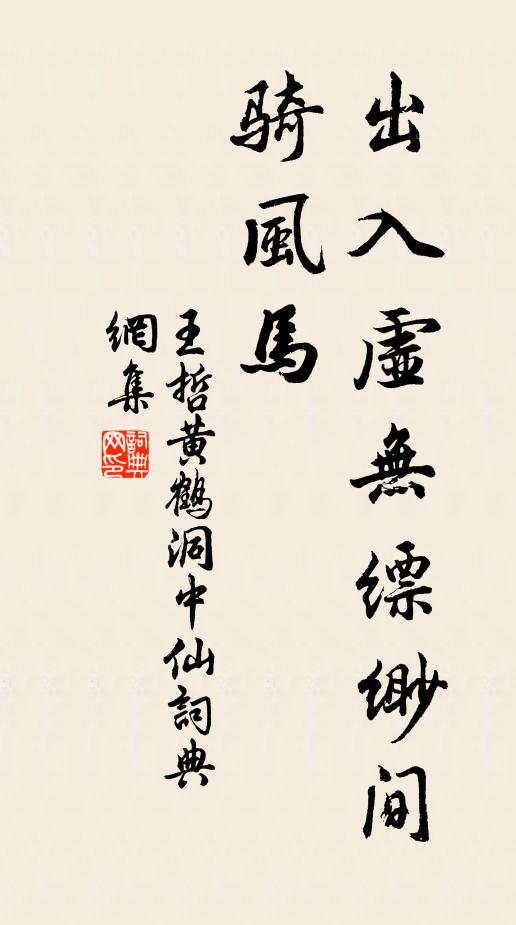 出入虛無縹緲間
騎風馬
王哲黄鶴洞中仙詞典
網集
詞典
网印